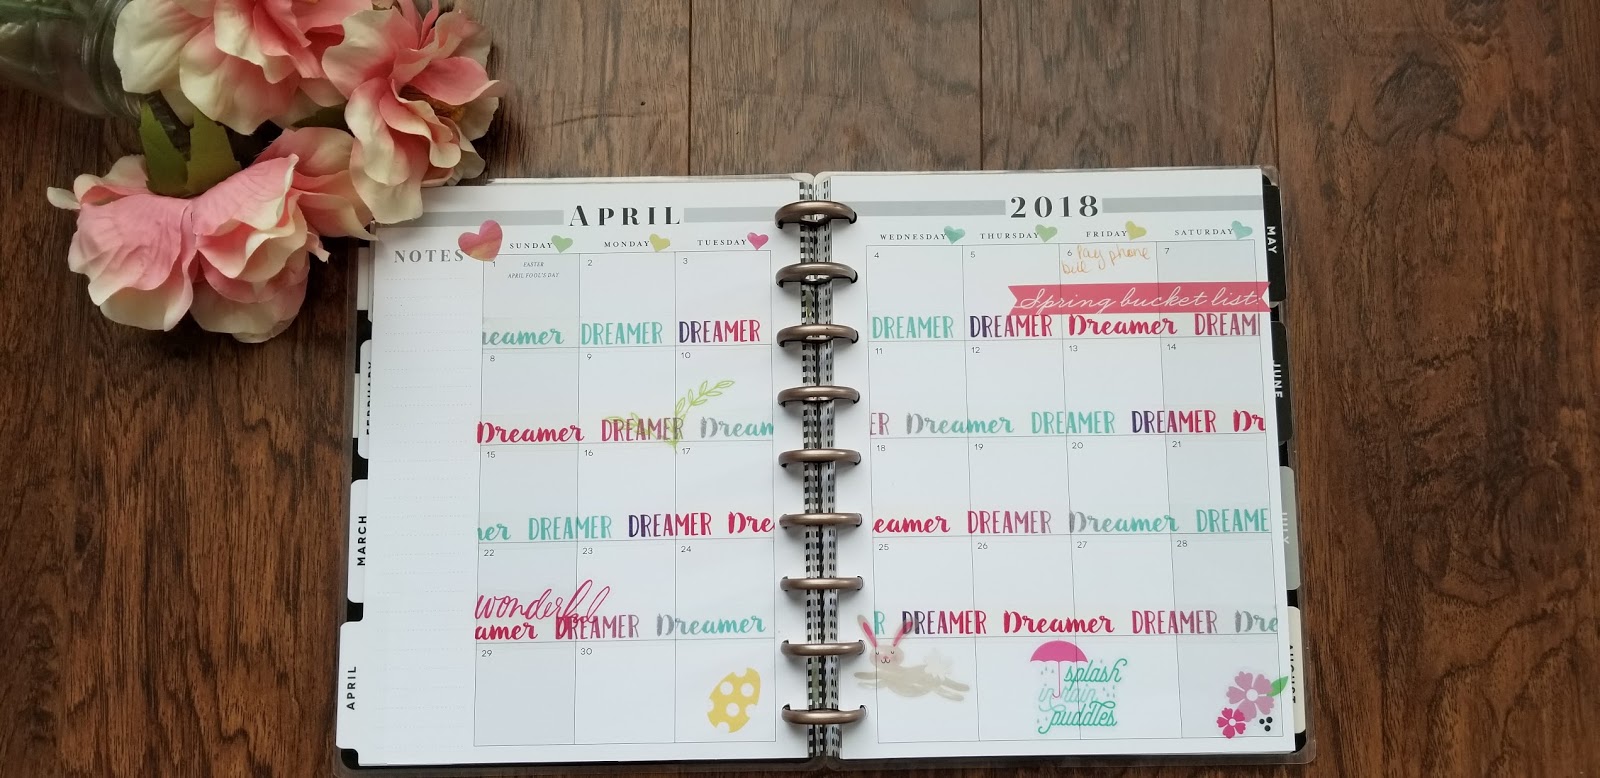 APRIL
2018
NOTES
SUNDAY MONDAY TUESDAY
WEDNESDAY THURSDAY FRIDAY SATURDAY
1 EASTER 2 3
APRIL FOOL'S DAY
4 5 6 Pay phone 7
bill
Spring bucket list:
eamer DREAMER DREAMER
DREAMER DREAMER Dreamer DREAM
8 9 10
11 12 13 14
Dreamer DREAMER Dream
ER Dreamer DREAMER DREAMER Dr
15 16 17
18 19 20 21
mer DREAMER DREAMER Dre
eamer DREAMER Dreamer DREAME
22 23 24
25 26 27 28
wonderful
amer DREAMER Dreamer
R DREAMER Dreamer DREAMER Dre
29 30
splash
in rain
puddles
FEBRUARY
MARCH
APRIL
MAY
JUNE
JULY
AUGUST